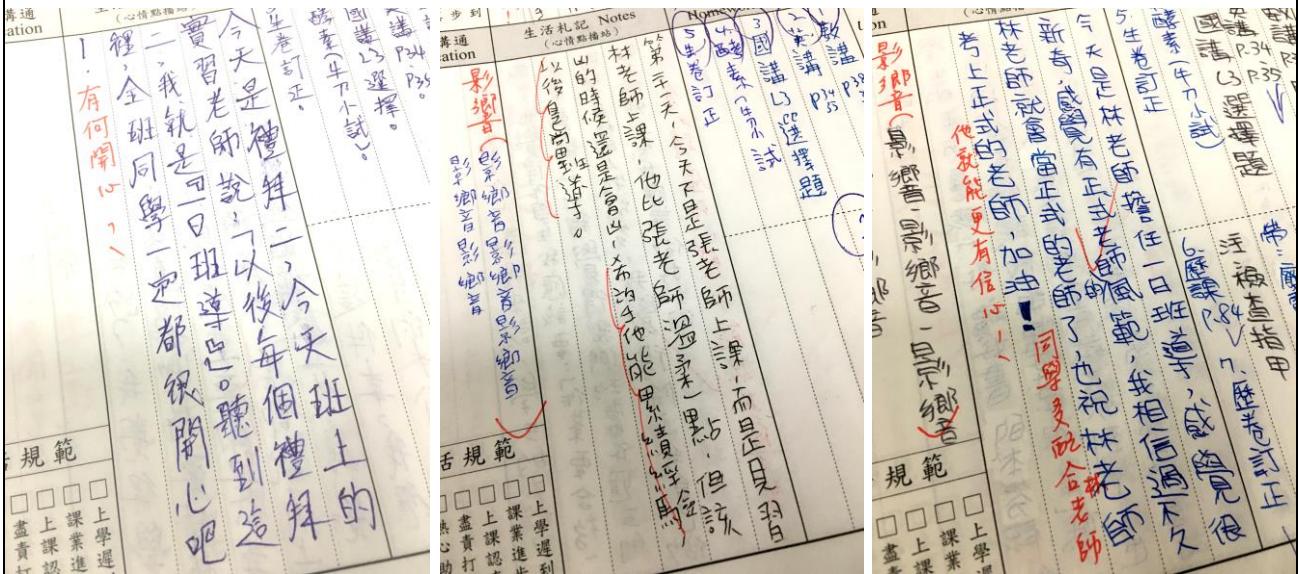 講 P34 P35。
國講 L3 選擇。
酵素(牛刀小試)。
生卷訂正。
今天是禮拜二,今天班上的
實習老師說:「以後每個禮拜
二,我就是『一日班導』」。聽到這
裡,全班同學一定都很開心吧
!有何開心?
溝通
ation
規範
盡責打
上課認
課業進
上學遲
步到
生活札記 Notes
(心情點播站)
Homework
1.數講 P38
2.英講 P34 P35
3.國講L3選擇題
4.酵素(牛刀小試
5.生卷訂正
第二天,今天不是張老師上課,而是見習
林老師上課,他比張老師溫柔一點,但該
凶的時候還是會凶,希望他能累積經驗
以後當班導。
影響(影響影響影響影響
影響影響
溝通
ation
活規範
熱心助
盡責打
上課認
課業進步
上學遲到
英講 P.34 P.35
國講 L3選擇題
酵素(牛刀小試)
5.生卷訂正
6.歷課 P.84
7.歷卷訂正
注:檢查指甲
今天是林老師擔任一日班導,感覺很
新奇,感覺有正式老師的風範,我相信過不久
林老師就會當正式的老師了,也祝林老師
考上正式的老師,加油!
同學多配合林老師
他就能更有信心!
影響(影響-影響-影響)
規範
盡責
上課
課業
上學遲